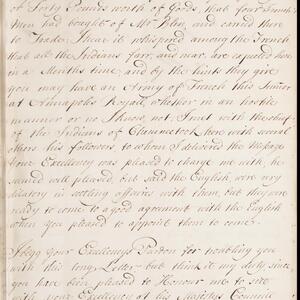 of Forty Pounds worth of goods that four French
Men had bought of Mr Blin, and carried there
to Trade, I hear it whispered among the French
that all the Indians farr, and near, are expected here
in a Months time, and by the hints they give
you may have an Army of French this Summer
at Annapolis Royall, whether in an hostile
manner or no I know not, I met with the chief
of the Indians of Chamnectoch here with several
others his followers to whom I delivered the Message
Your Excellency was pleased to charge me with, he
seemed well pleased, but said the English were very
dilatory in settling affairs with them, but they are
ready to come to a good agreement with the English
when you pleased to appoint them to come.
I begg your Excellencys Pardon for troubling you
with this long Letter but think it my duty since
you have been pleased to Honour me to sitt
with your Excellency at his Majestys Councile